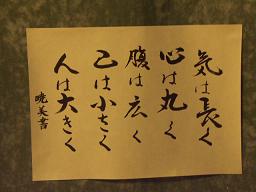 気は長く
心は丸く
腹は広く
己は小さく
人は大きく
暁美書